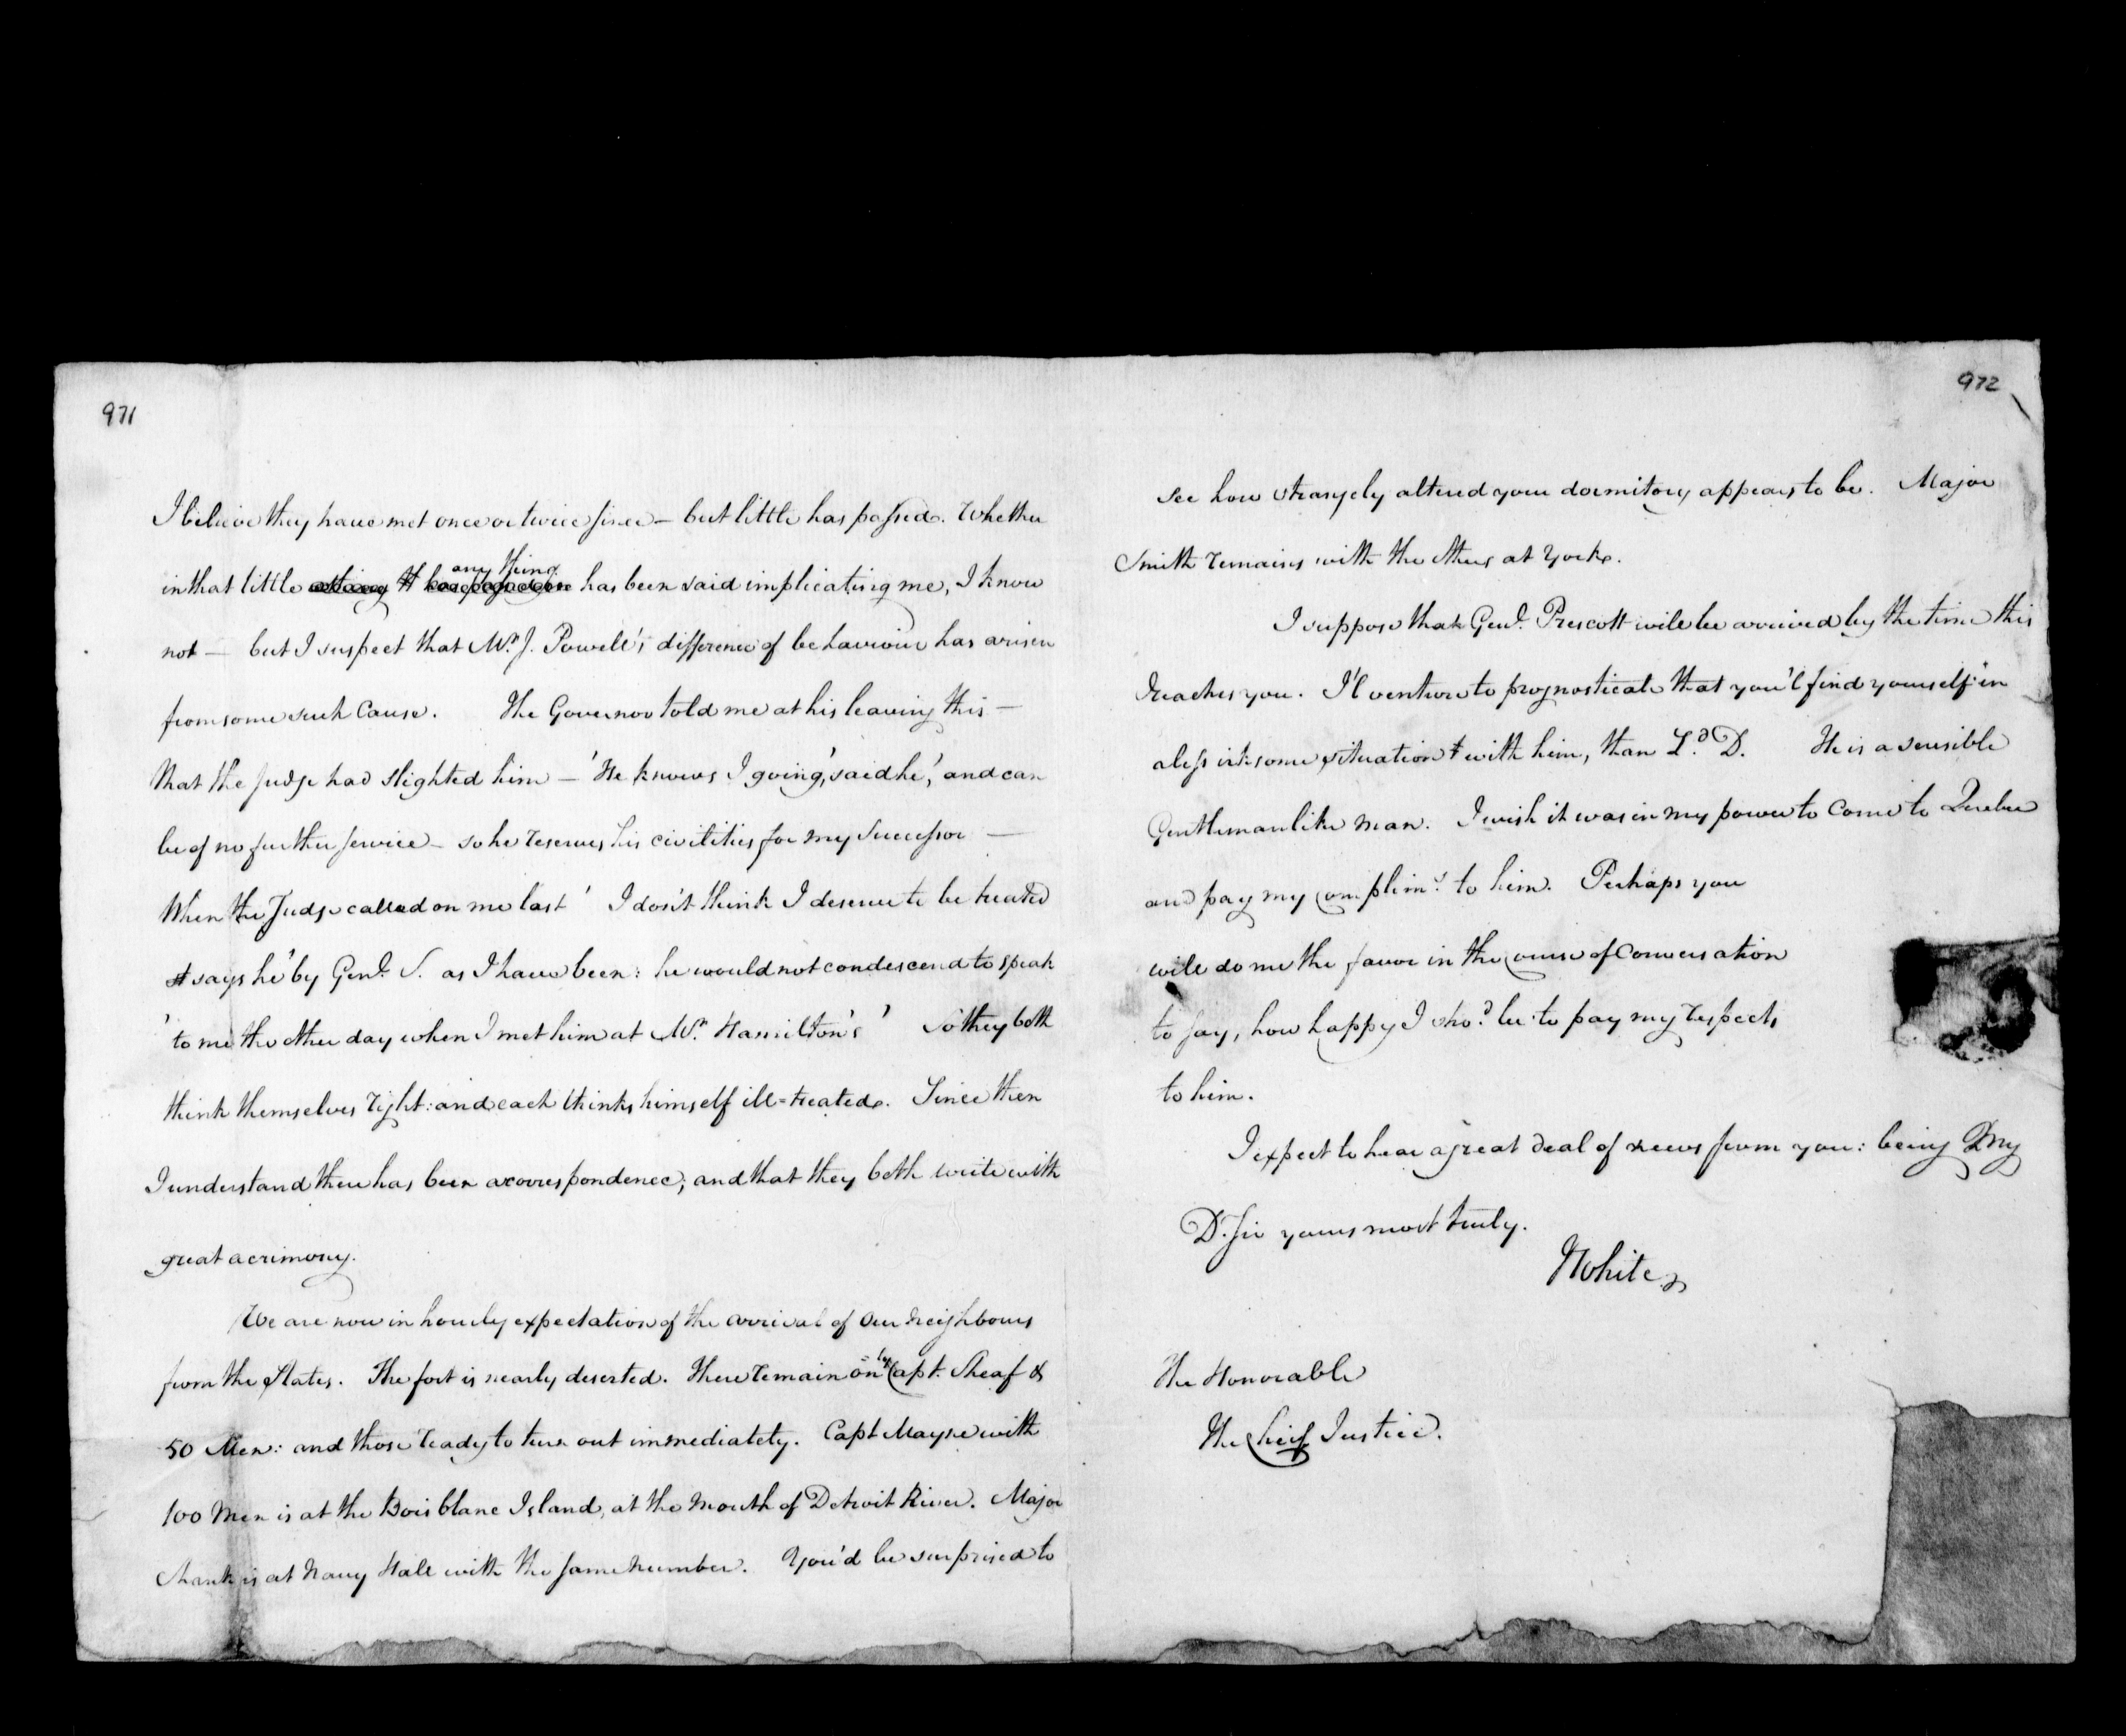 971
I believe they have met once or twice since – but little has passed. Whether
in that little any thing has been said implicating me, I know
not – but I suspect that Mr. J. Powell's difference of behaviour has arisen
from some such Cause. The Governor told me at his leaving this –
that the Judge had slighted him – 'He knows I going,' said he,' and can
be of no further service – so he reserves his civilities for my Successor –
When the Judge called on me last ' I don't think I deserve to be treated
says he' by Genl. S. as I have been: he would not condescend to speak
' to me the other day when I met him at Mr. Hamilton's ' So they both
think themselves right: and each thinks himself ill=treated. Since then
I understand there has been a correspondence; and that they both write with
great acrimony.
We are now in hourly expectation of the arrival of our neighbours
from the States. The fort is nearly deserted. There remain only Capt. Sheaf &
50 Men: and those ready to turn out immediately. Capt Mayne with
100 Men is at the Bois blanc Island, at the mouth of Detroit River. Major
Shank is at Navy Hall with the same number. You'd be surprised to
972
see how strangely altered your dormitory appears to be. Major
Smith remains with the others at York.
I suppose that Genl. Prescott will be arrived by the time this
reaches you. I'l venture to prognosticate that you'l find yourself in
a less irksome situation with him, than Ld. D. He is a sensible
Gentlemanlike man. I wish it was in my power to come to Quebec
and pay my complimts. to him. Perhaps you
will do me the favor in the course of Conversation
to say, how happy I shod. be to pay my respects
to him.
I expect to hear a great deal of news from you: being my
D. Sir yours most truly.
JWhite
The Honorable
The Cheif Justice.